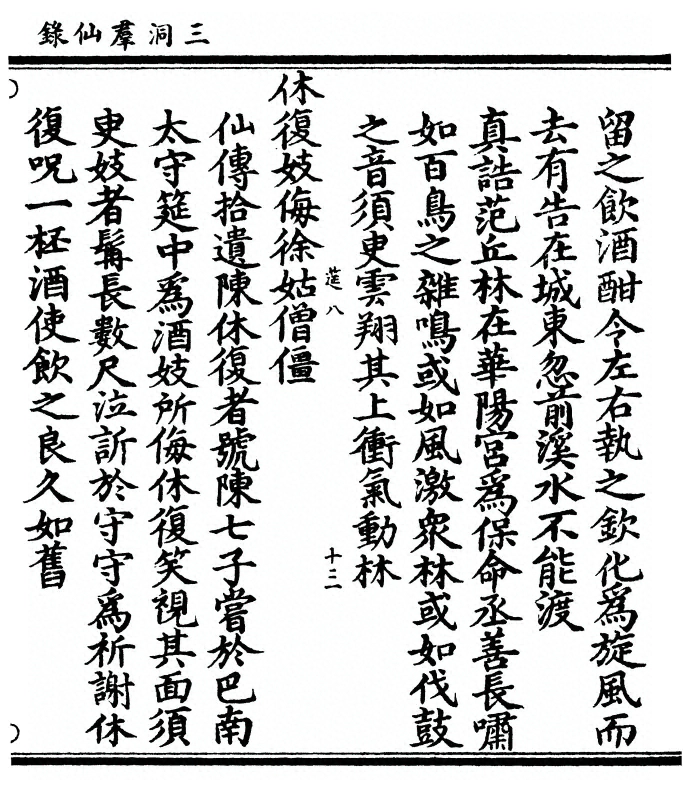 三洞羣仙錄
留之飲酒酣令左右執之欽化為旋風而
去有告在城東忽前溪水不能渡
真誥范丘林在華陽宮為保命丞善長嘯
如百鳥之雜鳴或如風激衆林或如伐鼓
之音須臾雲翔其上衝氣動林
筵八
十二
休復妓侮徐姑僧僵
仙傳拾遺陳休復者號陳七子嘗於巴南
太守筵中為酒妓所侮休復笑視其面須
臾妓者髯長數尺泣訴於守守為祈謝休
復呪一杯酒使飲之良久如舊